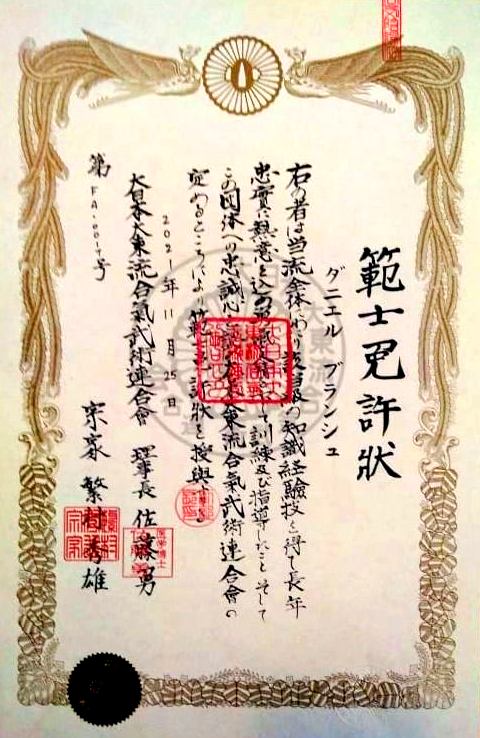 範士免許状
ダニエル ブランシュ
右の者は当流全体にわたり該当級の知識経験技を得て長年
忠實に熱意を込め
訓練及び指導したことそして
この団体への忠誠心を
大東流合氣武術連合會の
定めるところにより範士
許状を授與する
2021年11月25日
大日本大東流合氣武術連合會 理事長 佐藤勇
宗家 繁村秀雄
第FA-001号